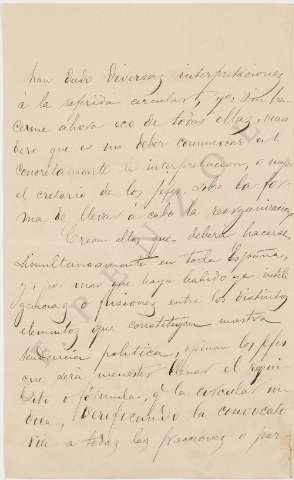 han dado diversas interpretaciones
á la referida circular, y, sin ha
cerme ahora eco de todas ellas, consi
dero que es un deber comunicar á V.
concretamente la interpretacion, o mejor
el criterio de los jefes sobre la for
ma de llevar á cabo la reorganizacion
Creen ellos que deberá hacerse
simultaneamente en toda España,
y, por mas que haya habido ya inteli
gencias o fusiones entre los distintos
elementos que constituyen nuestra
tendencia politica, opinan los jefes
que será menester llenar el requi
sito o fórmula, q. la circular in
dica, verificando la convocato
ria a todas las fracciones o par-
F. PENZOL